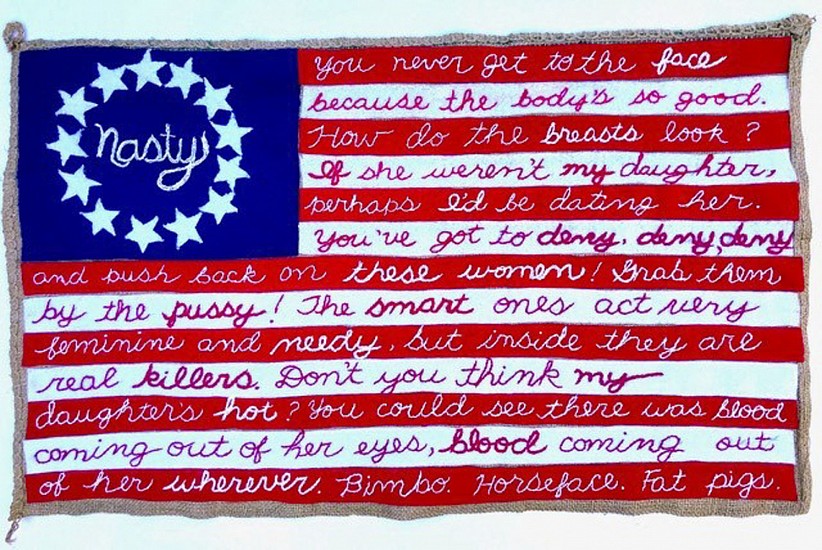 Nasty
You never get to the face
because the body's so good.
How do the breasts look?
If she weren't my daughter,
perhaps I'd be dating her.
You've got to deny, deny, deny
and push back on these women! Grab them
by the pussy! The smart ones act very
feminine and needy, but inside they are
real killers. Don't you think my
daughter's hot? You could see there was blood
coming out of her eyes, blood coming out
of her wherever. Bimbo. Horseface. Fat pigs.